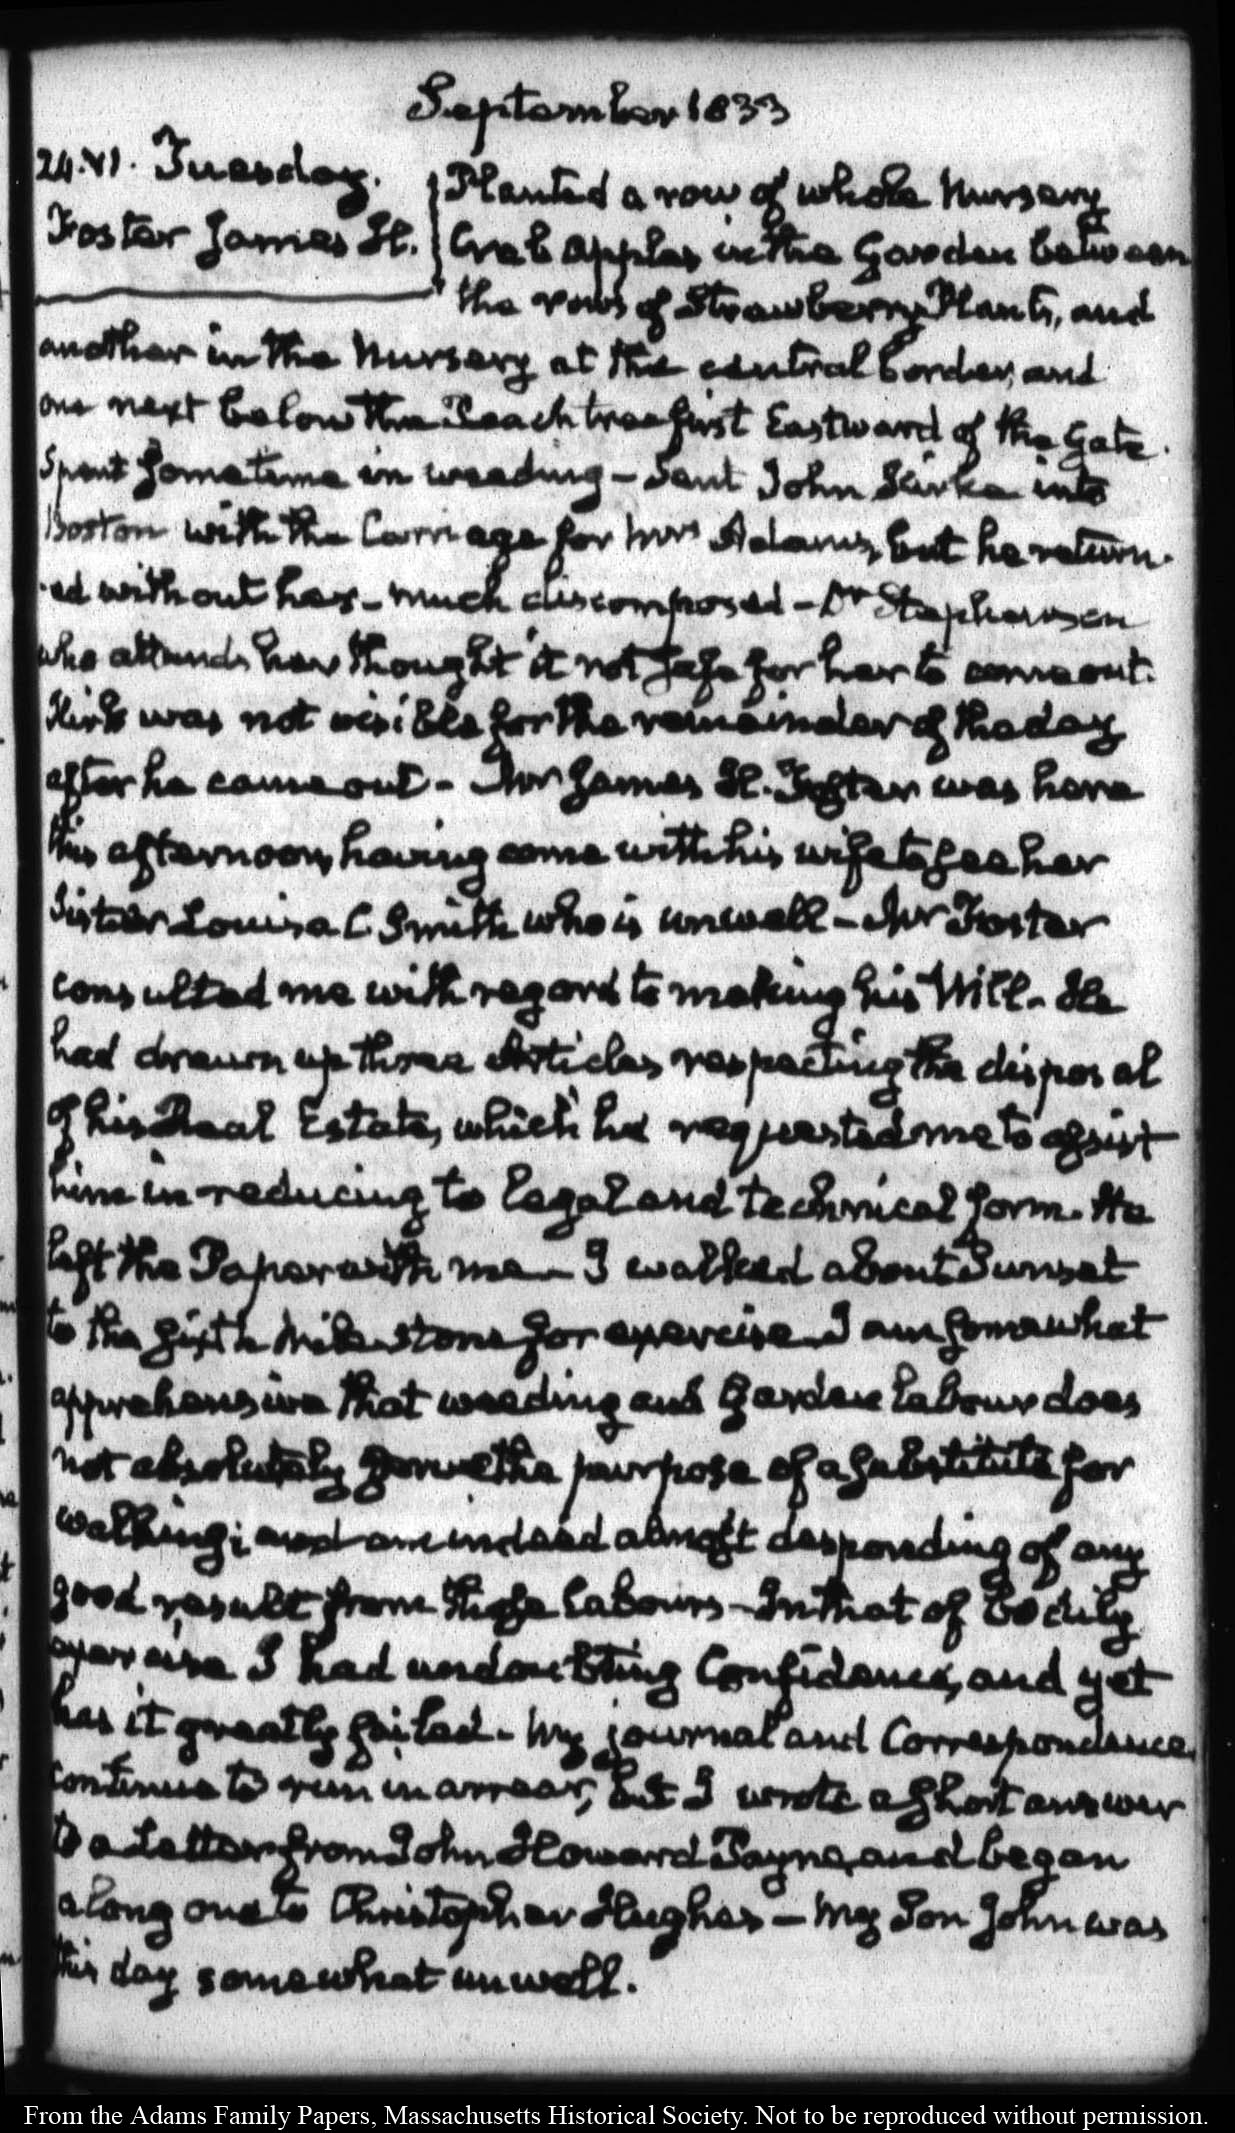 September 1833
24. VI. Tuesday.
Foster James H.
Planted a row of whole Nursery
Crab apples in the Garden between
the rows of Strawberry Plants, and
another in the Nursery at the central border, and
one next below the Peach tree first Eastward of the Gate.
Spent some time in weeding – Sent John Kirke into
Boston with the Carriage for Mrs Adams, but he return-
-ed without her – much discomposed – Dr Stephenson
who attends her thought it not safe for her to come out.
Kirk was not visible for the remainder of the day
after he came out – Mr James H. Foster was here
this afternoon, having come with his wife to see her
Sister Louisa C. Smith who is unwell – Mr Foster
consulted me with regard to making his Will – He
had drawn up three Articles respecting the disposal
of his Real Estate, which he requested me to assist
him in reducing to legal and technical form. He
left the Paper with me – I walked about Sunset
to the sixth mile stone for exercise – I am somewhat
apprehensive that weeding and Garden labour does
not absolutely serve the purpose of a substitute for
walking; and am indeed almost desponding of any
good result from those labours – In that of bodily
exercise I had undoubting Confidence, and yet
has it greatly failed – My journal and Correspondence
continue to run in arrear, but I wrote a short answer
to a Letter from John Howard Payne, and began
a long one to Christopher Hughes – My Son John was
this day somewhat unwell.
From the Adams Family Papers, Massachusetts Historical Society. Not to be reproduced without permission.